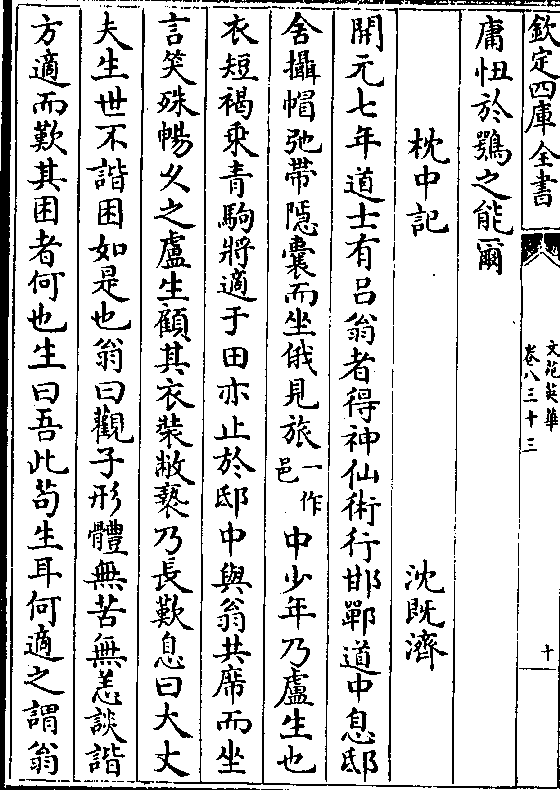 欽定四庫全書
文苑英華
卷八百三十三
十
庸忸於鶚之能爾
枕中記 沈既濟
開元七年道士有呂翁者得神仙術行邯鄲道中息邸
舍攝帽弛帶隱囊而坐俄見旅一作邑中少年乃盧生也
衣短褐乘青駒將適于田亦止於邸中與翁共席而坐
言笑殊暢久之盧生顧其衣裝敝褻乃長歎息曰大丈
夫生世不諧困如是也翁曰觀子形體無苦無恙談諧
方適而歎其困者何也生曰吾此苟生耳何適之謂翁